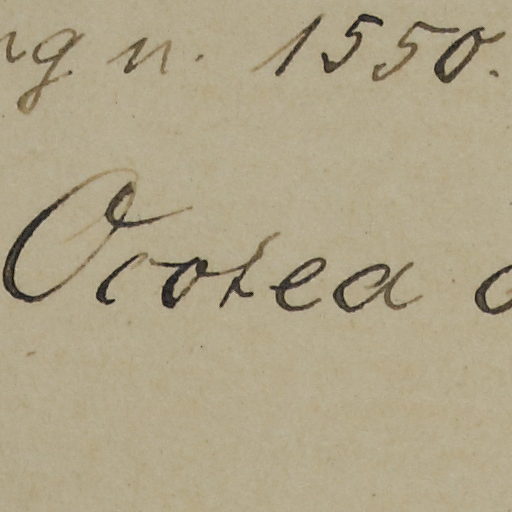 n. 1550.
Ocotea